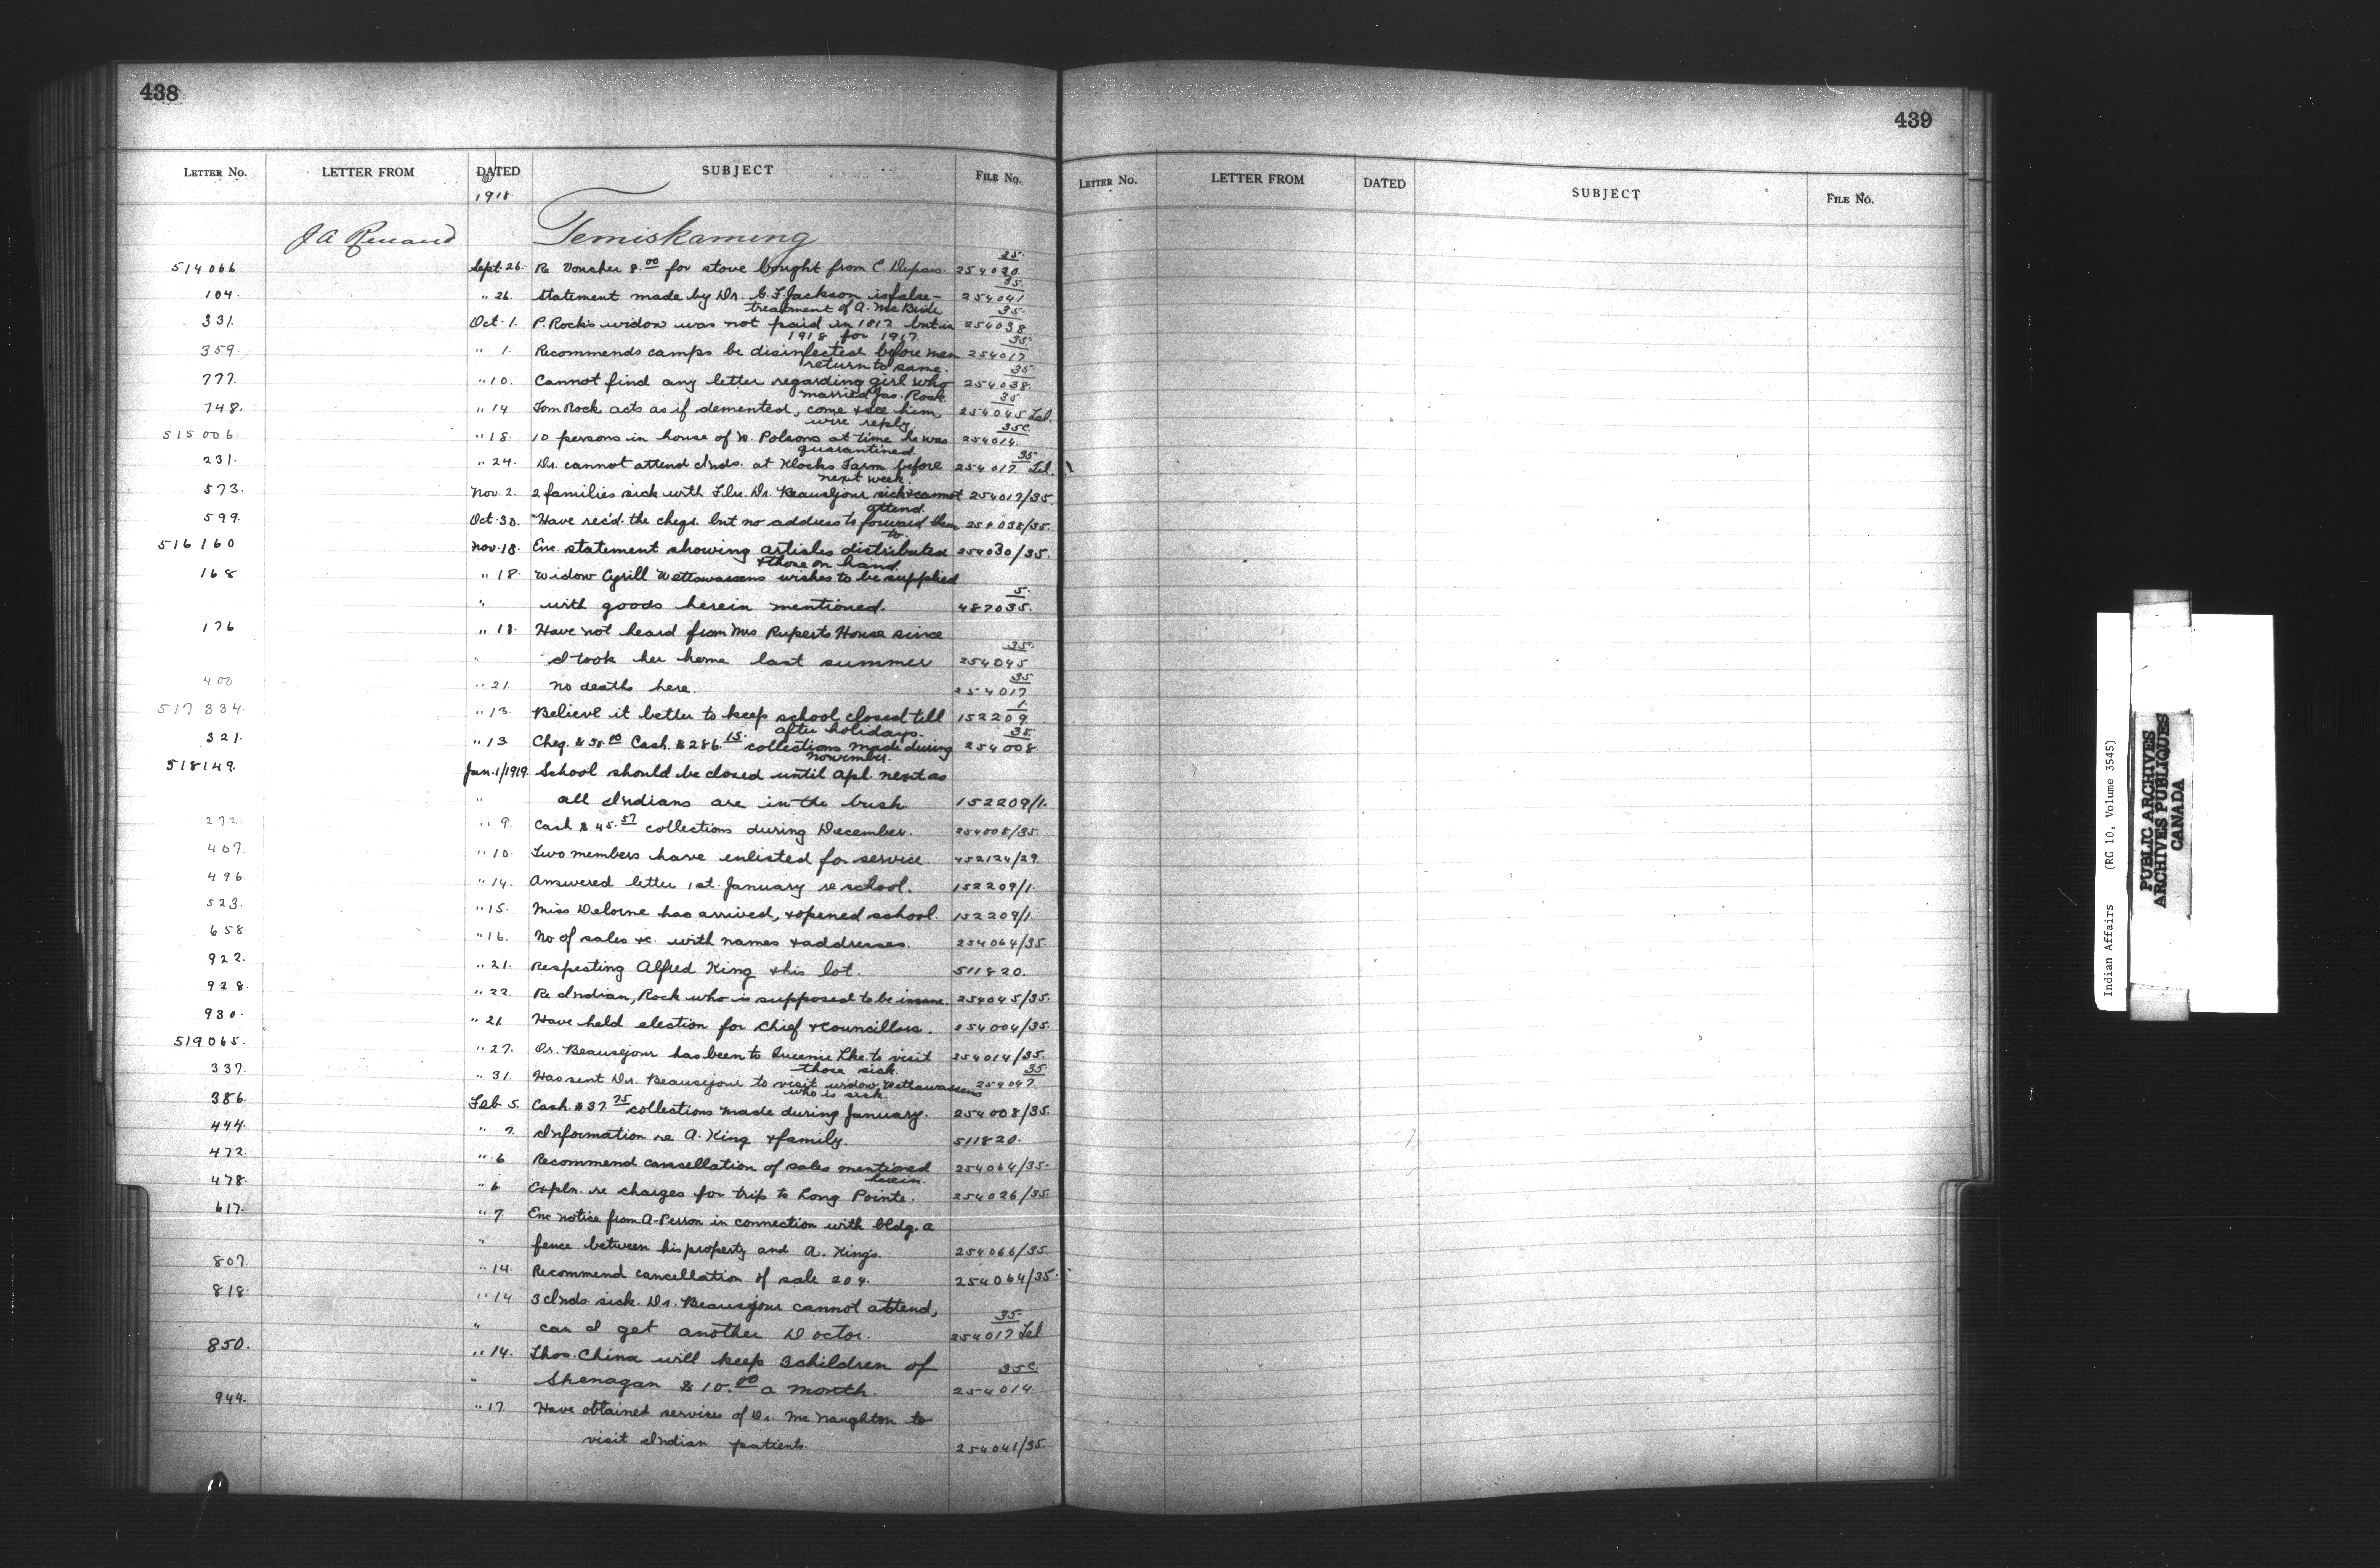 438
LETTER No. LETTER FROM DATED SUBJECT FILE No.
1918
J A Renaud Temiskaming
514066 Sept 26. Re Voucher 8.00 for stove bought from C. Dupuis. 254030 35.
104. " 26. Statement made by Dr. G.F. Jackson is false – 254041 35.
treatment of A. McBride
331. Oct. 1. P. Rock's widow was not paid in 1917 but in 254038 35.
1918 for 1917.
359. " 1. Recommends camps be disinfected before men 254017 35.
return to same.
777. " 10. Cannot find any letter regarding girl who 254038. 35
married Jas. Rock.
748. " 14 Tom Rock acts as if demented, come & see him, 254045 Tel. 35
wire reply.
515006. " 18. 10 persons in house of W. Polsons at time he was 254014. 35C.
quarantined.
231. " 24. Dr. cannot attend Inds. at Klocks Farm before 254017 Tel. 35
next week.
573. Nov. 2. 2 families sick with Flu. Dr. Beausejour sick & cannot 254017/35.
attend.
599. Oct. 30. Have rec'd. the cheqs. but no address to forward them 254038/35.
to.
516160 Nov. 18. Enc. statement showing articles distributed 254030/35.
& those on hand.
168 " 18. Widow Cyrill Wettawassens wishes to be supplied
" with goods herein mentioned. 487035. 5.
176 " 18. Have not heard from Mrs Ruperts House since
" I took her home last summer 254045 35.
400 " 21. No deaths here. 254017 35
517334. " 13. Believe it better to keep school closed till 152209 1.
after holidays.
321. " 13 Cheq. $50.00 Cash. $286.15. collections made during 254008. 35.
November.
518149. Jan. 1/1919. School should be closed until Apl. next as
" all Indians are in the bush. 152209/1.
272. " 9. Cash $45.57 collections during December. 254008/35.
407. " 10. Two members have enlisted for service. 452124/29.
496 " 14. Answered letter 1st. January re school. 152209/1.
523. " 15. Miss Delorne has arrived, & opened school. 152209/1.
658 " 16. No of sales &c. with names & addresses. 254064/35.
922. " 21. Respecting Alfred King & his lot. 511820.
928. " 22. Re Indian, Rock who is supposed to be insane. 254045/35.
930. " 21 Have held election for Chief & Councillors. 254004/35.
519065. " 27. Dr. Beausejour has been to Lke. to visit 254014/35.
those sick.
337. " 31. Has sent Dr. Beausejour to visit widow Wettawassens 254047 35.
who is sick
386. Feb 5. Cash. $37.75 collections made during January. 254008/35.
444. " 7. Information re A. King & family. 511820.
472. " 6 Recommend cancellation of sales mentioned 254064/35.
herein.
478. " 6 Expln. re charges for trip to Long Pointe. 254026/35.
617. " 7. Enc notice from A. Perron in connection with bldg. a
" fence between his property and A. King's. 254066/35.
807. " 14. Recommend cancellation of sale 204. 254064/35.
818. " 14 3 Inds. sick. Dr. Beausejour cannot attend,
" can I get another Doctor. 254017 Tel 35.
850. " 14. Thos. China will keep 3 children of
" Shenagan $10.00 a month. 254014. 35C.
944. " 17. Have obtained services of Dr. McNaughton to
visit Indian patients. 254041/35.
439
LETTER No. LETTER FROM DATED SUBJECT FILE No.
Indian Affairs (RG 10, Volume 3545)
PUBLIC ARCHIVES
ARCHIVES PUBLIQUES
CANADA